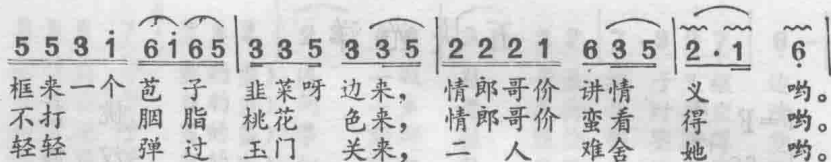 5 5 3 i 6 i 6 5 | 3 3 5 3 3 5 | 2 2 2 1 6 3 5 | 2 · 1 6 |
框来一个 苞 子 韭菜呀 边来， 情郎哥价 讲情 义 哟。
不打 胭 脂 桃花 色来， 情郎哥价 蛮看 得 哟。
轻轻 弹 过 玉门 关来， 二 人 难舍 她 哟。